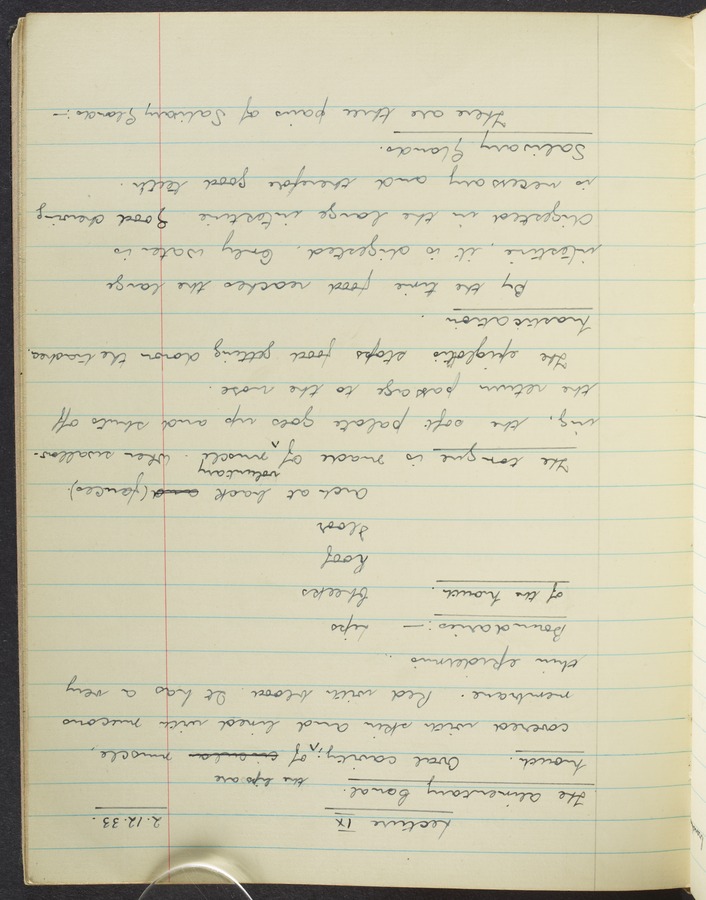 Lecture IX 2.12.33.
The Alimentary Canal.
the lips are
Mouth. Oral cavity; of muscle,
covered with skin and lined with mucous
membrane. Red with blood. It has a very
thin epidermis.
Boundaries :— Lips
of the Mouth. Cheeks
Roof
Floor
Arch at back and (fauces).
voluntary
The tongue is made of muscle. When swallow-
ing, the soft palate goes up and shuts off
the return passage to the nose.
The epiglotis stops food getting down the trachea.
Mastication.
By the time food reaches the large
intestine, it is digested. Only water is
digested in the large intestine Good chewing
is necessary and therefore good teeth.
Salivary Glands.
There are three pairs of Salivary Glands :—